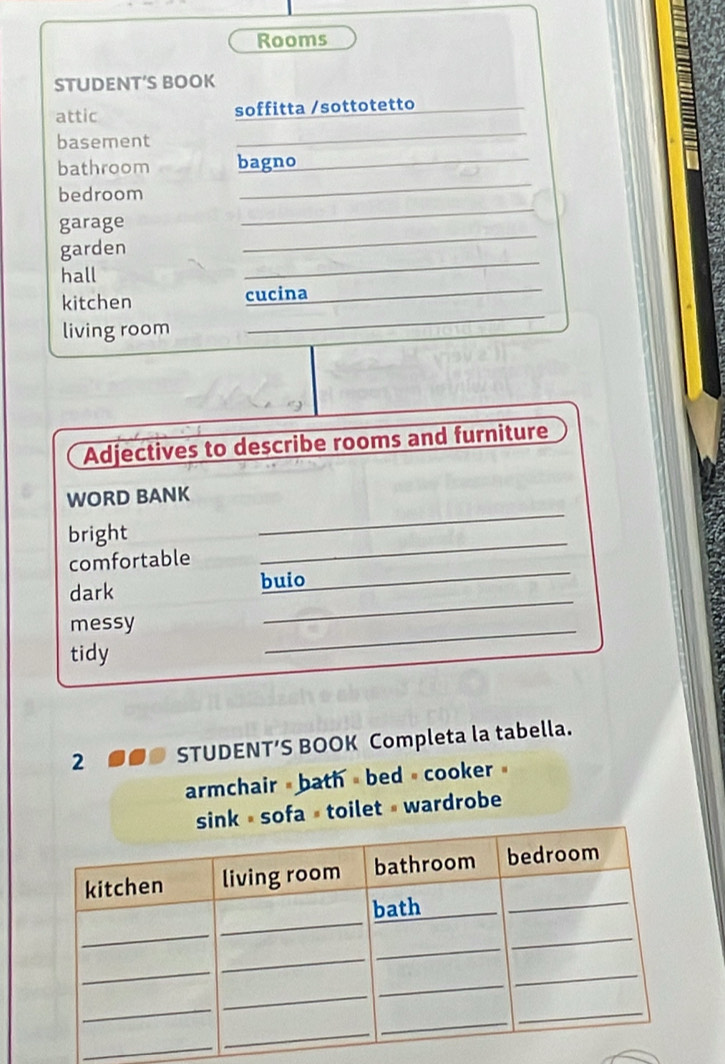 Rooms
STUDENT'S BOOK
attic soffitta /sottotetto
basement
bathroom bagno
bedroom
garage
garden
hall
kitchen cucina
living room
Adjectives to describe rooms and furniture
WORD BANK
bright
comfortable
dark buio
messy
tidy
2 STUDENT'S BOOK Completa la tabella.
armchair • bath • bed • cooker •
sink • sofa • toilet • wardrobe
kitchen living room bathroom bedroom
bath